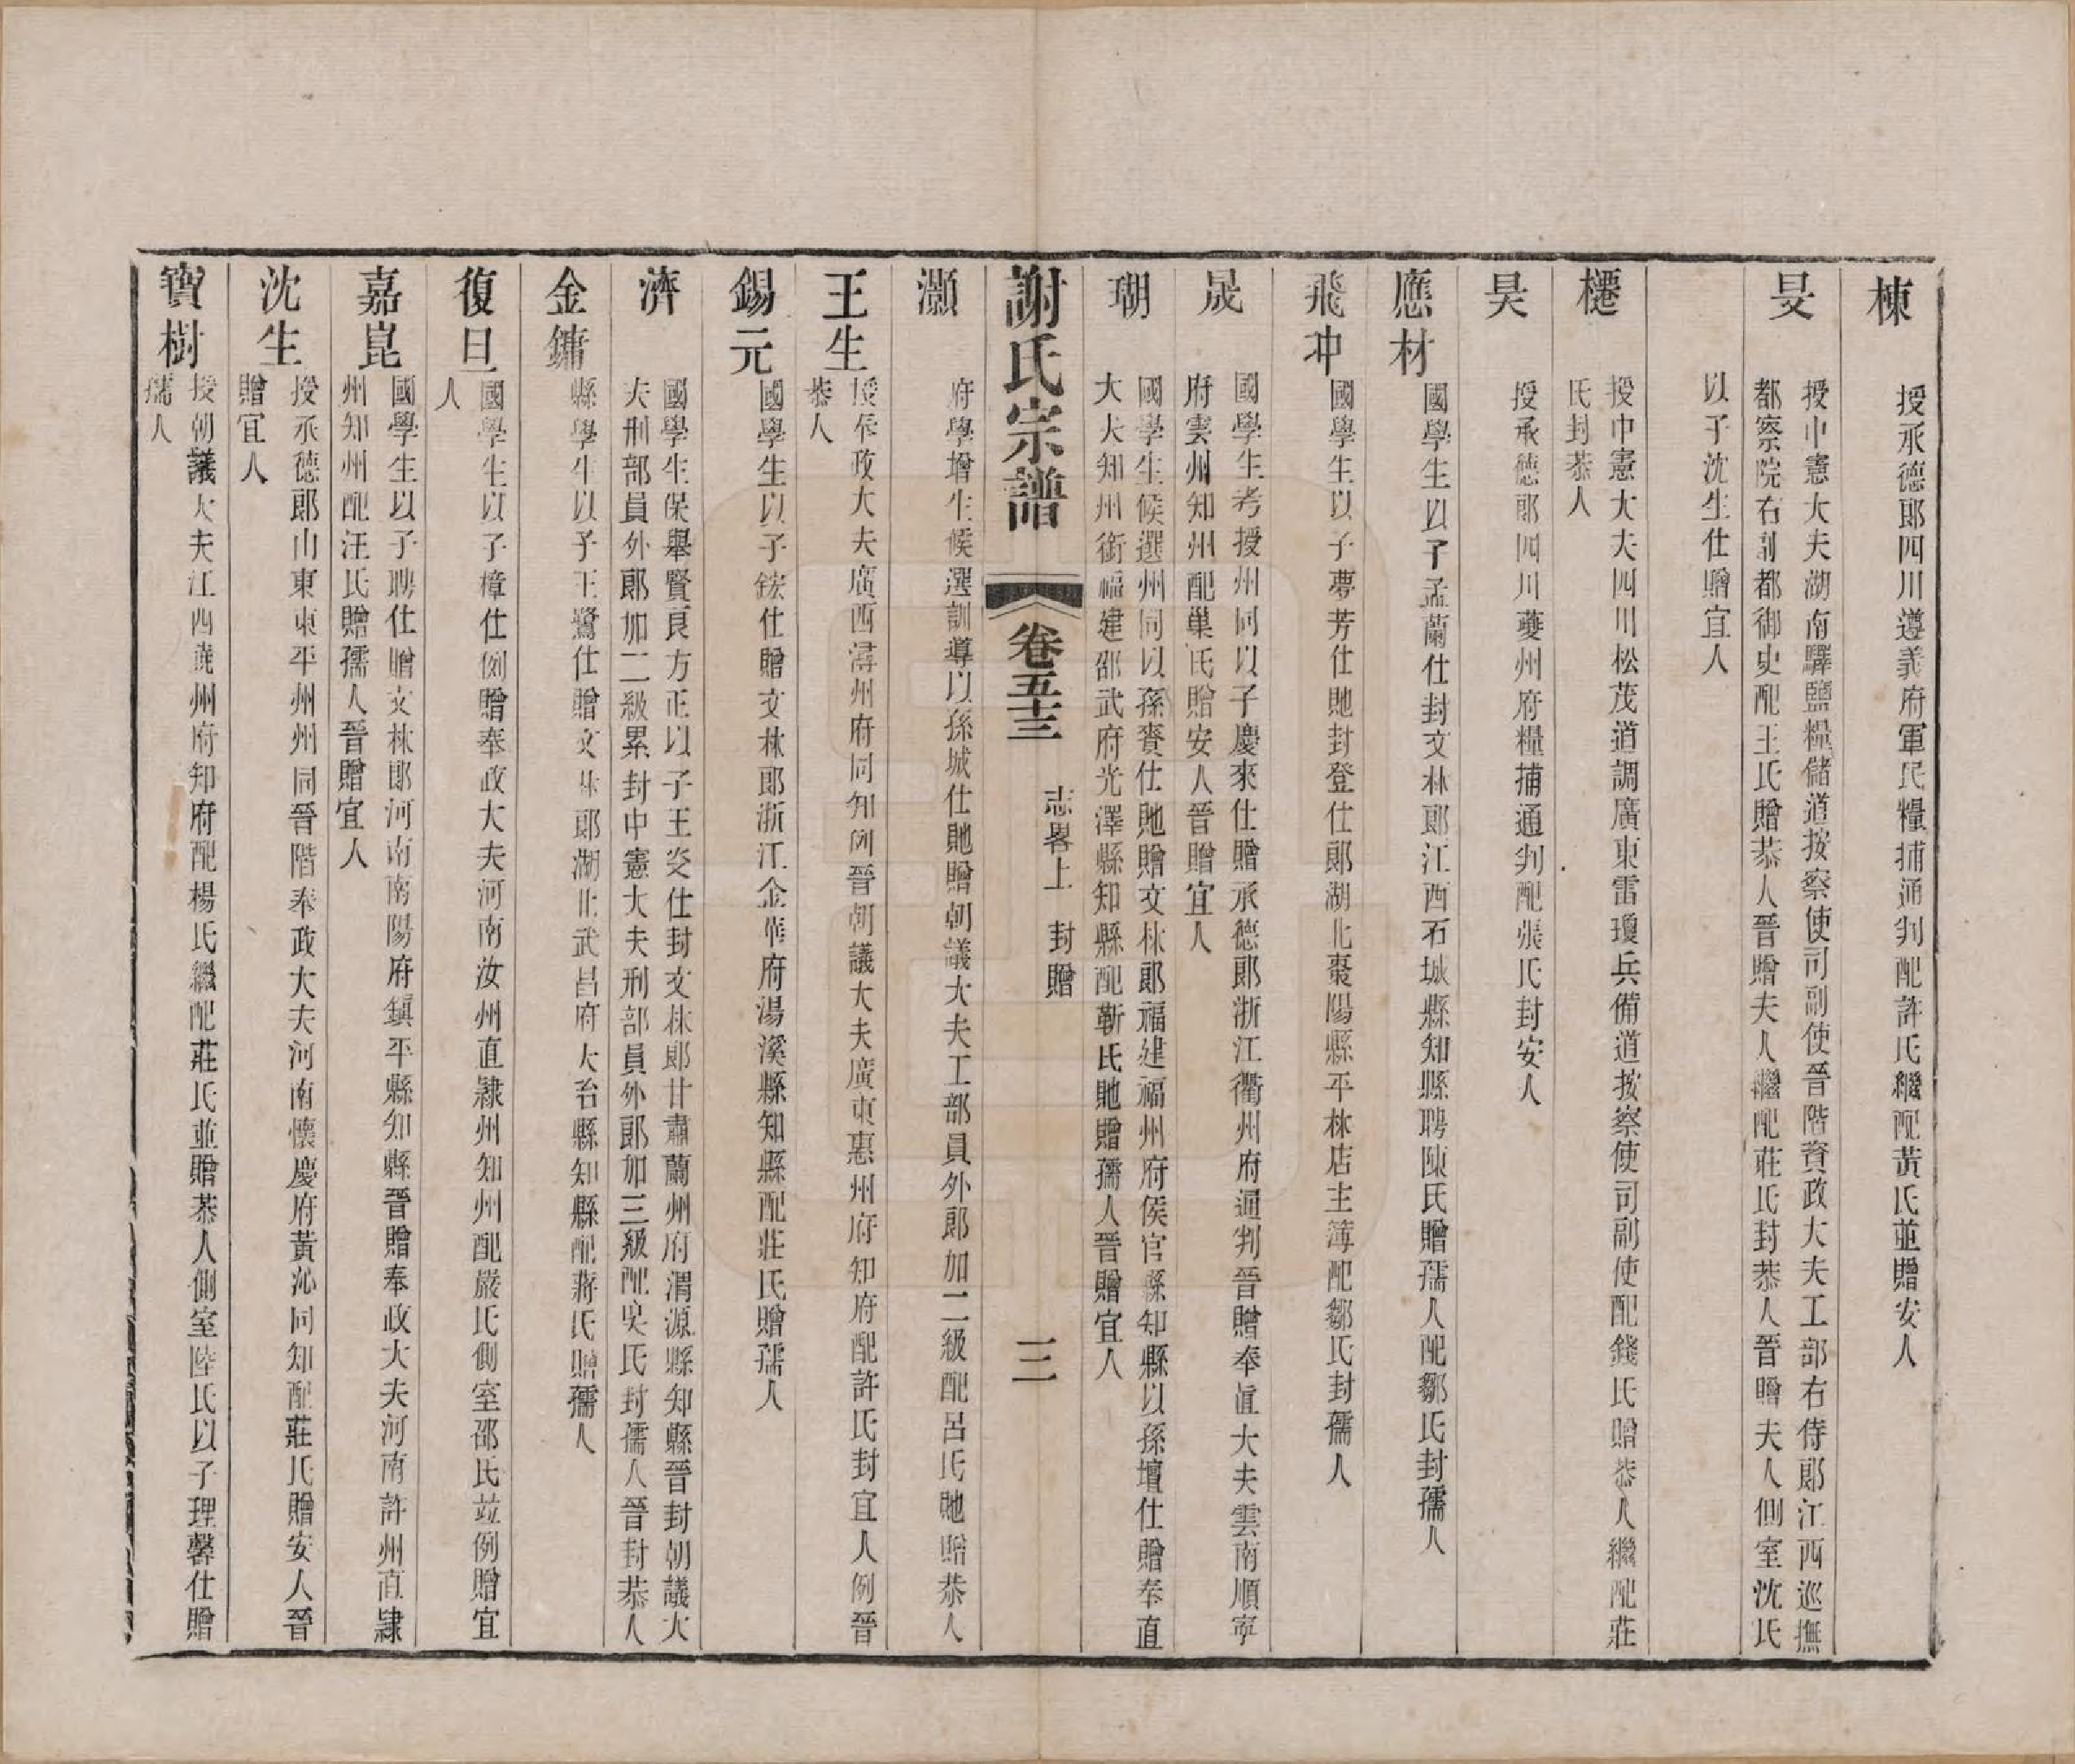 棟
授承德郎四川遵義府軍民糧捕通判配許氏繼配黃氏並贈安人
旻
授中憲大夫湖南驛鹽糧儲道按察使司副使晉階資政大夫工部右侍郎江西巡撫
都察院右副都御史配王氏贈恭人晉贈夫人繼配莊氏封恭人晉贈夫人側室沈氏
以子沈生仕贈宜人
櫏
授中憲大夫四川松茂道調廣東雷瓊兵備道按察使司副使配錢氏贈恭人繼配莊
氏封恭人
昊
授承德郎四川夔州府糧捕通判配張氏封安人
應材
國學生以子孟蘭仕封文林郎江西石城縣知縣聘陳氏贈孺人配鄒氏封孺人
飛冲
國學生以子夢芳仕貤封登仕郎湖北棗陽縣平林店主簿配鄒氏封孺人
晟
國學生考授州同以子慶來仕贈承德郎浙江衢州府通判晉贈奉直大夫雲南順寧
府雲州知州配巢氏贈安人晉贈宜人
瑚
國學生候選州同以孫賚仕貤贈文林郎福建福州府侯官縣知縣以孫壇仕贈奉直
大夫知州銜福建邵武府光澤縣知縣配靳氏貤贈孺人晉贈宜人
謝氏宗譜
卷五十三
志畧上 封贈
三
灝
府學增生候選訓導以孫城仕貤贈朝議大夫工部員外郎加二級配呂氏貤贈恭人
王生
授奉政大夫廣西潯州府同知例晉朝議大夫廣東惠州府知府配許氏封宜人例晉
恭人
錫元
國學生以子鋐仕贈文林郎浙江金華府湯溪縣知縣配莊氏贈孺人
濟
國學生保舉賢良方正以子王炎仕封文林郎甘肅蘭州府渭源縣知縣晉封朝議大
夫刑部員外郎加二級累封中憲大夫刑部員外郎加三級配吳氏封孺人晉封恭人
金鏞
縣學生以子王鷺仕贈文林郎湖北武昌府大台縣知縣配蔣氏贈孺人
復旦
國學生以子樟仕例贈奉政大夫河南汝州直隸州知州配嚴氏側室邵氏竝例贈宜
人
嘉崑
國學生以子聘仕贈文林郎河南南陽府鎮平縣知縣晉贈奉政大夫河南許州直隸
州知州配汪氏贈孺人晉贈宜人
沈生
授承德郎山東東平州州同晉階奉政大夫河南懷慶府黃沁同知配莊氏贈安人晉
贈宜人
寶樹
授朝議大夫江西饒州府知府配楊氏繼配莊氏並贈恭人側室陸氏以子理馨仕贈
孺人